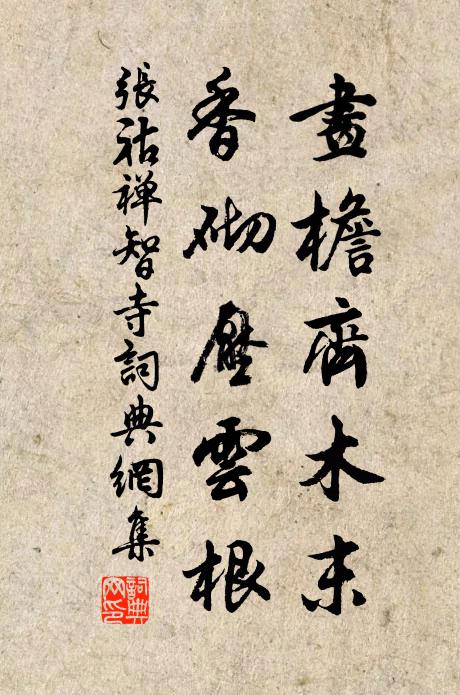 畫檐齊木末
香砌壓雲根
張祜禅智寺詞典網集
詞典網印